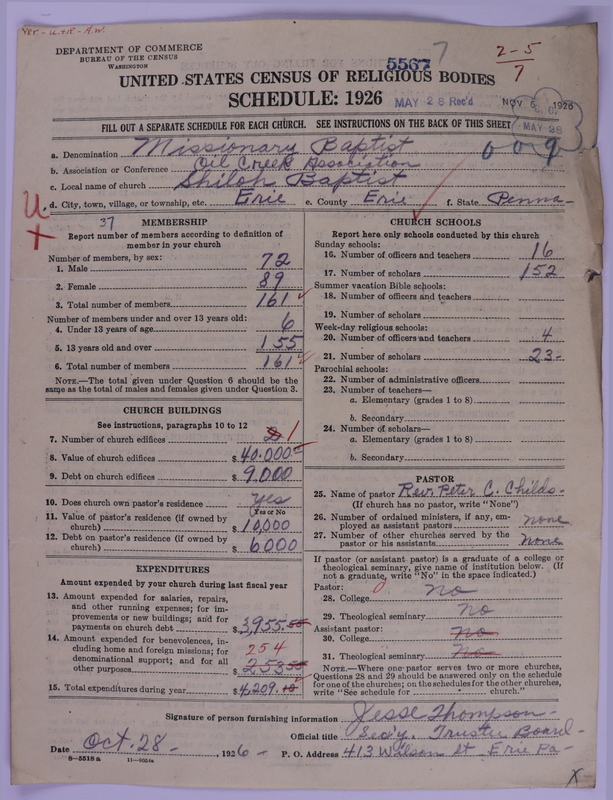 Ver - U. & R - A.W.
DEPARTMENT OF COMMERCE
BUREAU OF THE CENSUS
WASHINGTON
5567
7
2-5
7
UNITED STATES CENSUS OF RELIGIOUS BODIES
SCHEDULE: 1926
MAY 28 Rec'd
NOV 5, 1926
MAY 28
FILL OUT A SEPARATE SCHEDULE FOR EACH CHURCH. SEE INSTRUCTIONS ON THE BACK OF THIS SHEET
009
a. Denomination Missionary Baptist
b. Association or Conference Oil Creek Association
c. Local name of church Shiloh Baptist
U.
d. City, town, village, or township, etc. Erie e. County Erie f. State Penna-
37
MEMBERSHIP
Report number of members according to definition of
member in your church
Number of members, by sex:
1. Male 72
2. Female 89
3. Total number of members 161
Number of members under and over 13 years old:
4. Under 13 years of age 6
5. 13 years old and over 155
6. Total number of members 161
NOTE.—The total given under Question 6 should be the
same as the total of males and females given under Question 3.
CHURCH BUILDINGS
See instructions, paragraphs 10 to 12
7. Number of church edifices 2 1
8. Value of church edifices $ 40.000
9. Debt on church edifices $ 9.000
10. Does church own pastor's residence? yes
Yes or No
11. Value of pastor's residence (if owned by
church) $ 10,000
12. Debt on pastor's residence (if owned by
church) $ 6000
EXPENDITURES
Amount expended by your church during last fiscal year
13. Amount expended for salaries, repairs,
and other running expenses; for im-
provements or new buildings; and for
payments on church debt $ 3,955
14. Amount expended for benevolences, in-
cluding home and foreign missions; for
denominational support; and for all
other purposes $ 253
254
15. Total expenditures during year $ 4,209.
CHURCH SCHOOLS
Report here only schools conducted by this church
Sunday schools:
16. Number of officers and teachers 16
17. Number of scholars 152
Summer vacation Bible schools:
18. Number of officers and teachers
19. Number of scholars
Week-day religious schools:
20. Number of officers and teachers 4
21. Number of scholars 23-
Parochial schools:
22. Number of administrative officers
23. Number of teachers—
a. Elementary (grades 1 to 8)
b. Secondary
24. Number of scholars—
a. Elementary (grades 1 to 8)
b. Secondary
PASTOR
25. Name of pastor Rev. Peter C. Childs-
(If church has no pastor, write "None")
26. Number of ordained ministers, if any, em-
ployed as assistant pastors none
27. Number of other churches served by the
pastor or his assistants none
If pastor (or assistant pastor) is a graduate of a college or
theological seminary, give name of institution below. (If
not a graduate, write "No" in the space indicated.)
Pastor: 0
28. College no
29. Theological seminary no
Assistant pastor:
30. College no
31. Theological seminary no
NOTE.—Where one pastor serves two or more churches,
Questions 28 and 29 should be answered only on the schedule
for one of the churches; on the schedules for the other churches,
write "See schedule for church."
Signature of person furnishing information Jesse Thompson-
Official title Secy. Trustee Board-
Date Oct. 28- , 1926- P. O. Address 413 Wilson St Erie Pa-
8—5518 a
X